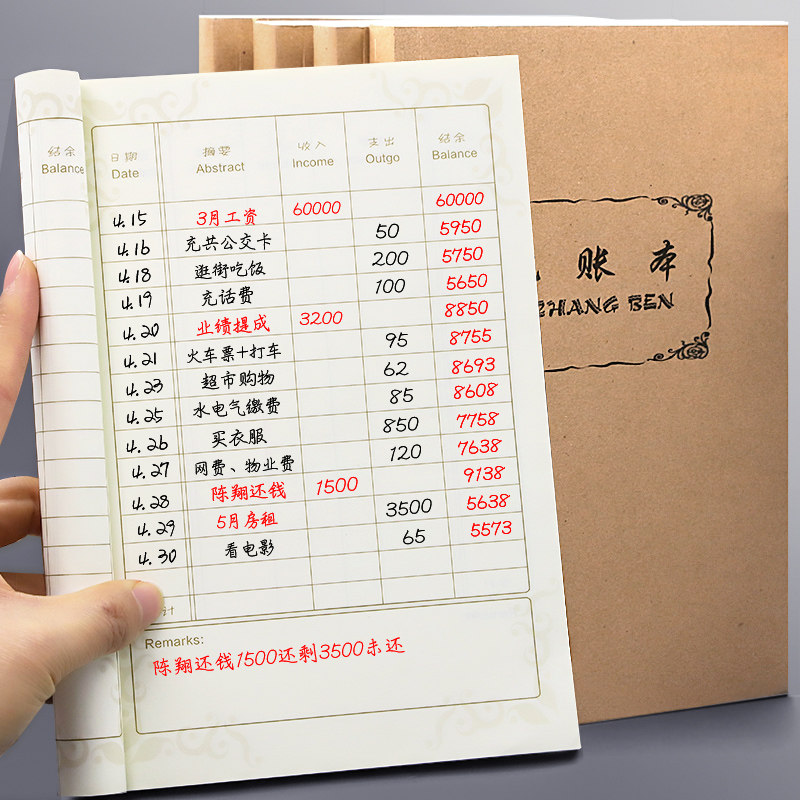 结余
Balance
日期 摘要 收入 支出 结余
Date Abstract Income Outgo Balance
4.15 3月工资 60000 60000
4.16 充共公交卡 50 5950
4.18 逛街吃饭 200 5750
4.19 充话费 100 5650
4.20 业绩提成 3200 8850
4.21 火车票+打车 95 8755
4.23 超市购物 62 8693
4.25 水电气缴费 85 8608
4.26 买衣服 850 7758
4.27 网费、物业费 120 7638
4.28 陈翔还钱 1500 9138
4.29 5月房租 3500 5638
4.30 看电影 65 5573
计
Remarks:
陈翔还钱1500还剩3500未还
账本
ZHANG BEN